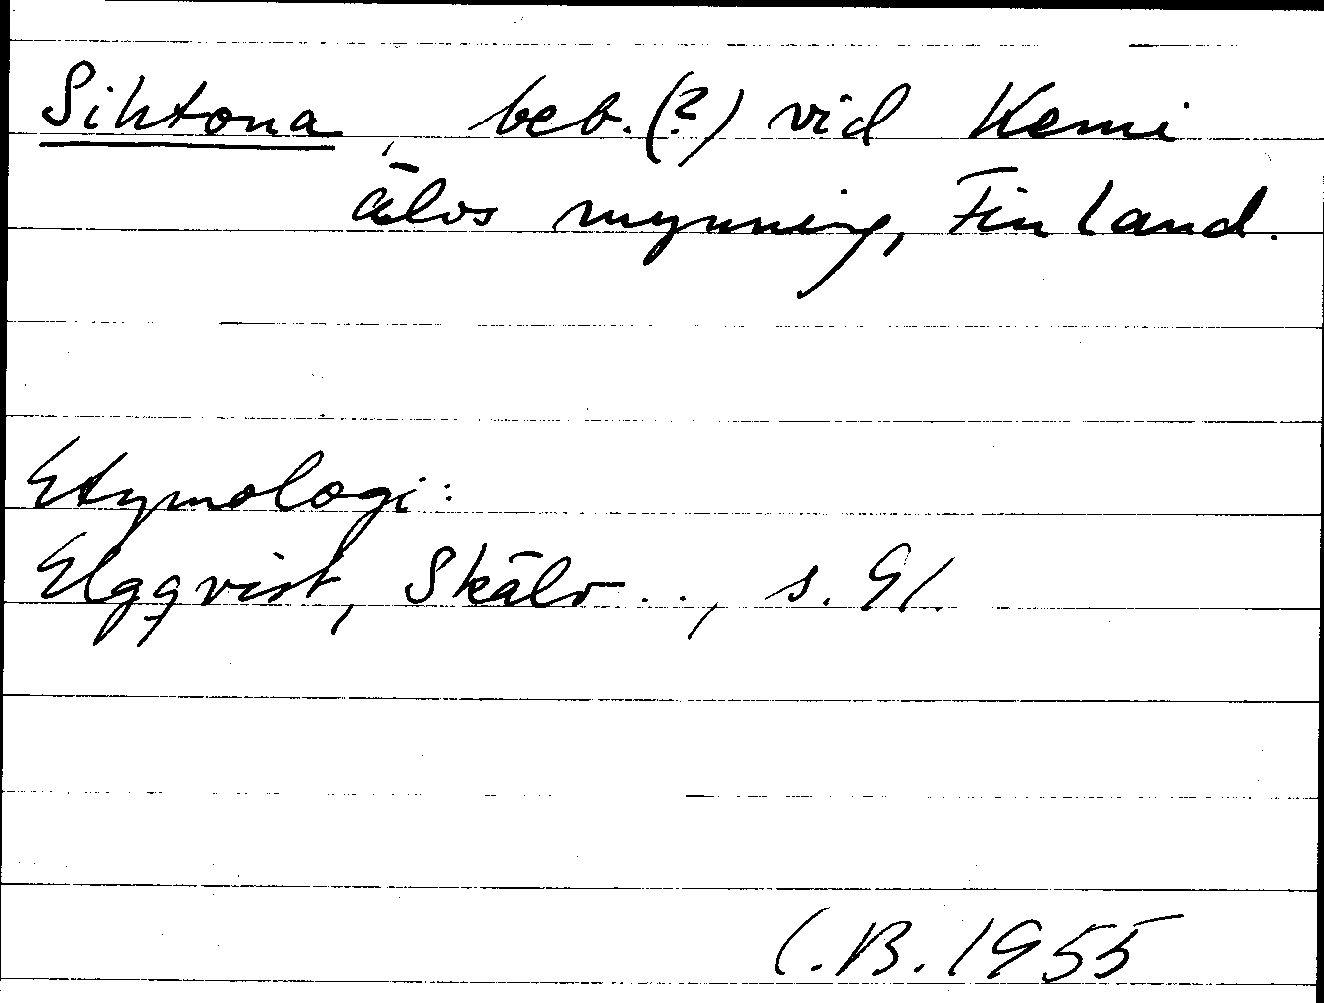 Sihtona, beb. (?) vid Kemi
älvs mynning, Finland.
Etymologi:
Elgqvist, Skälv..., s. 91.
C.B. 1955